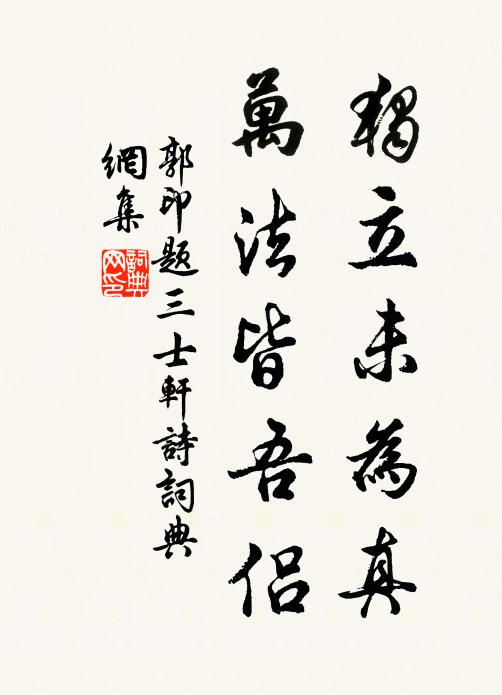 獨立未為真
萬法皆吾侶
郭印題三士軒詩詞典
網集
詞典网印